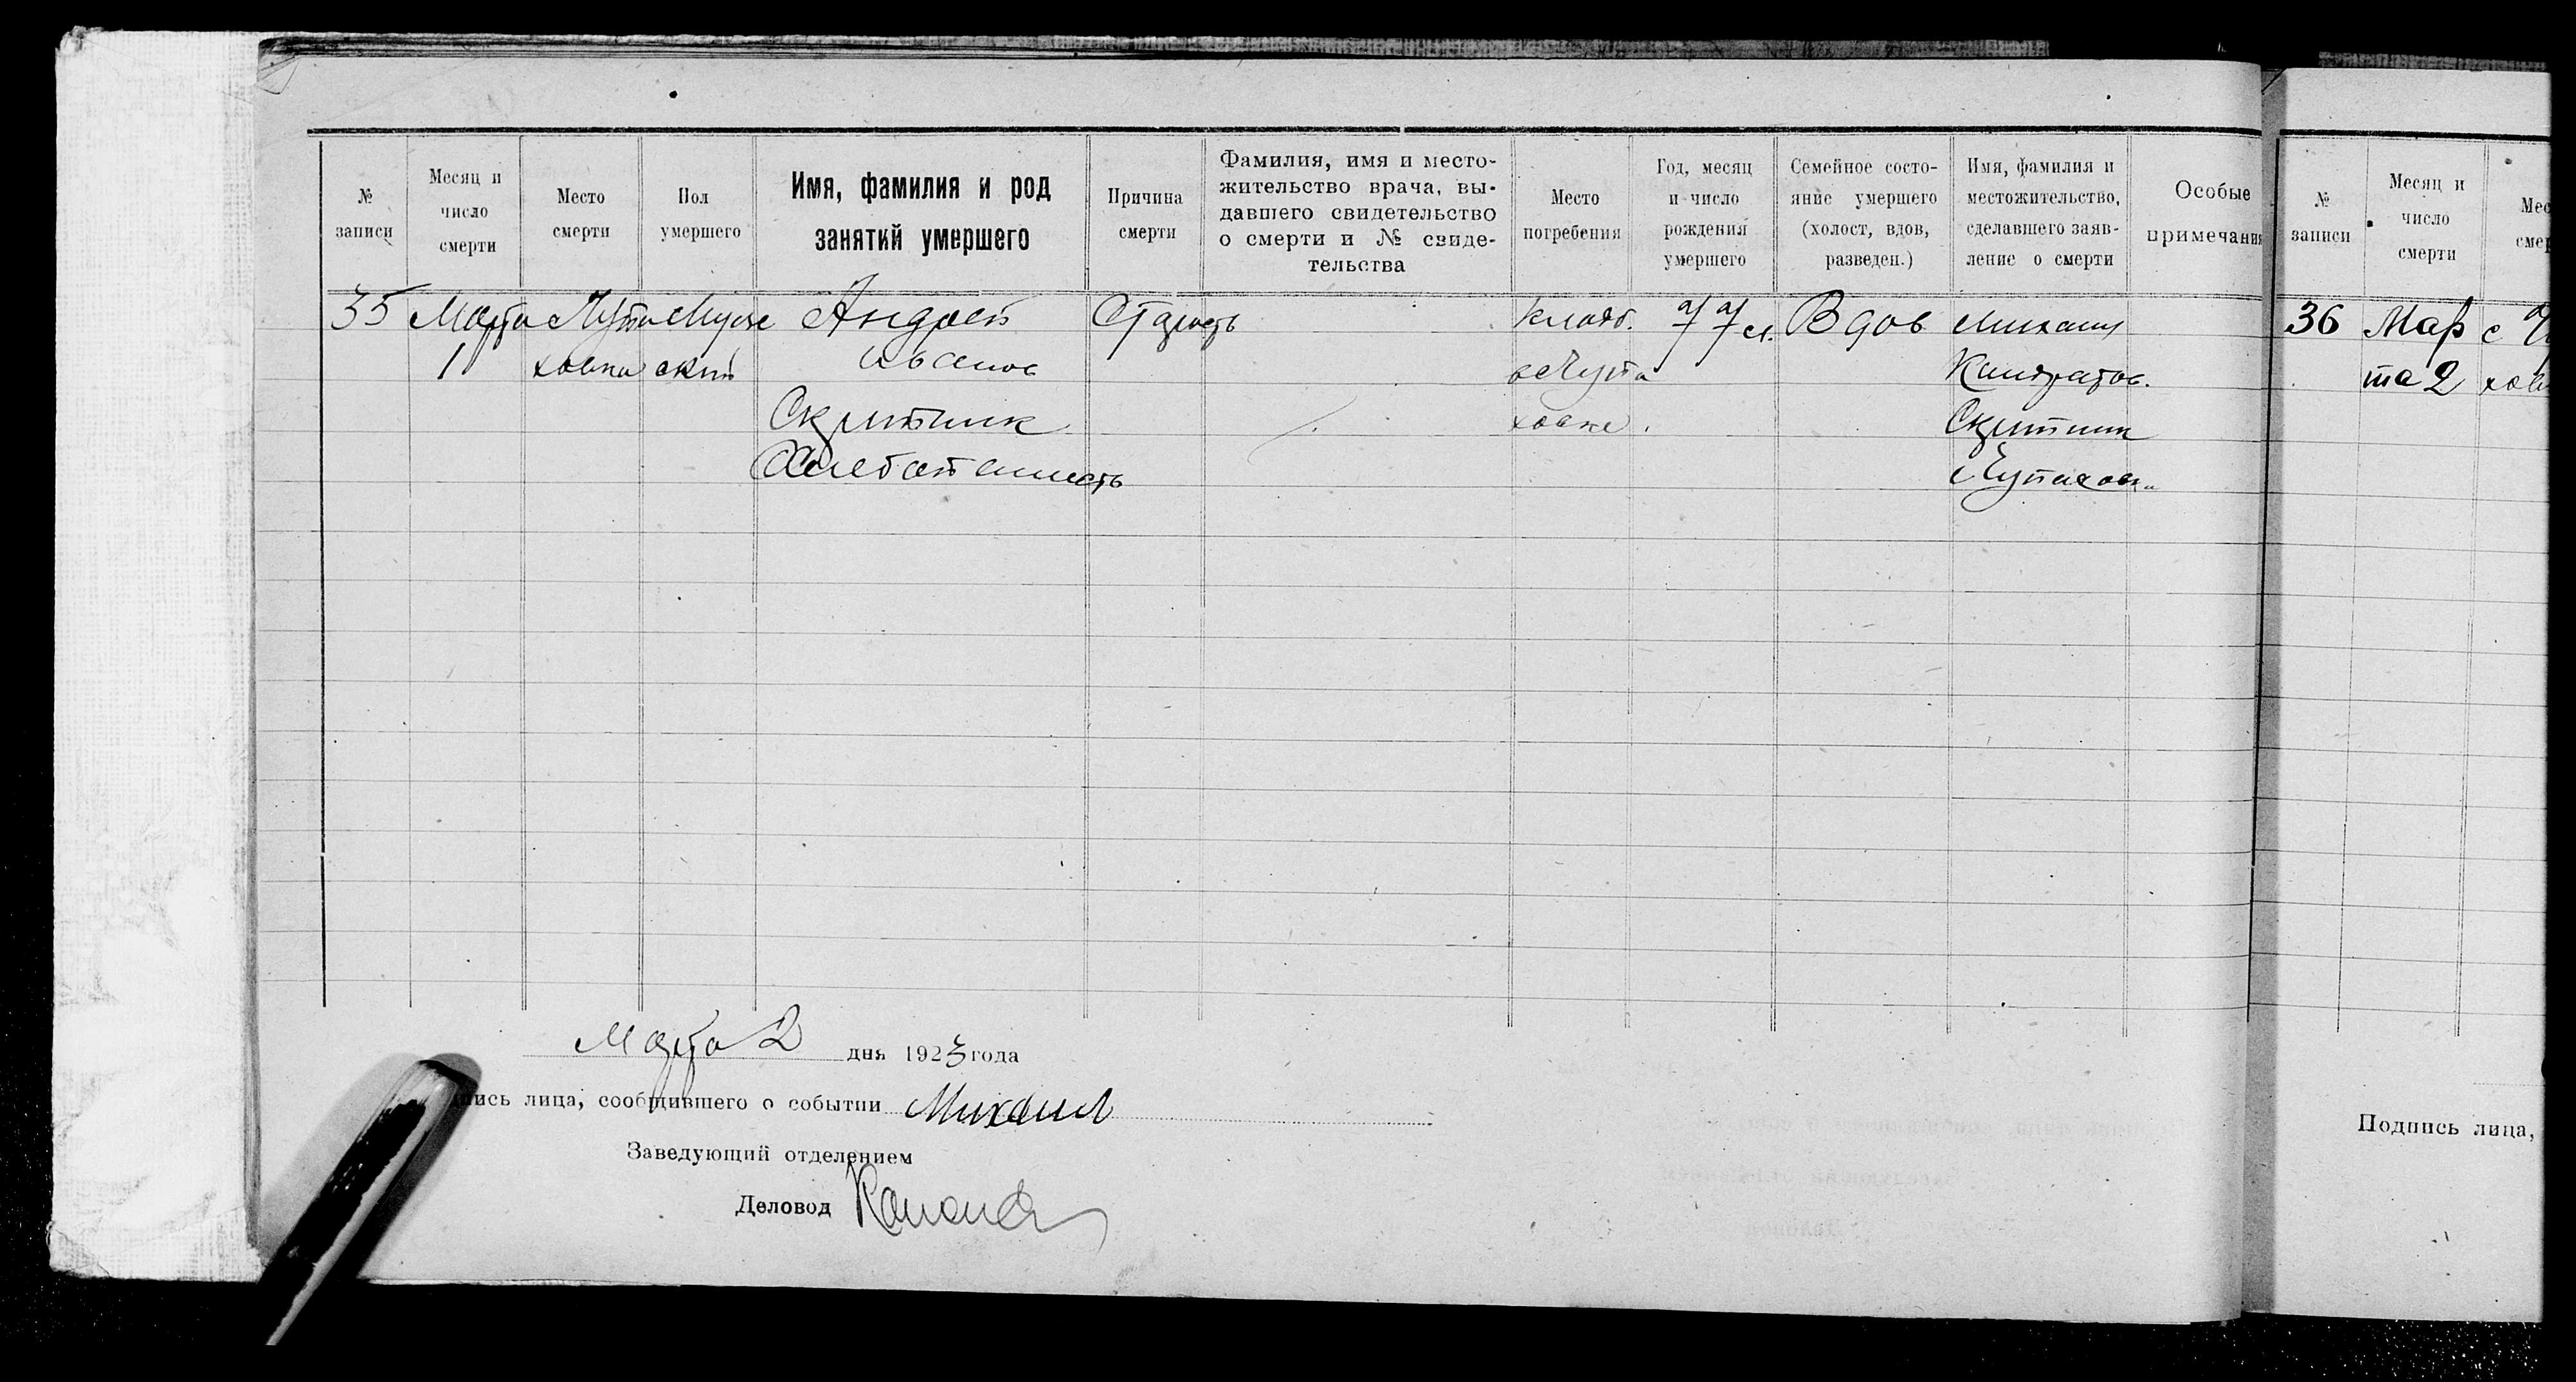 № записи
Месяц и число смерти
Место смерти
Пол умершего
Имя, фамилия и род занятий умершего
Причина смерти
Фамилия, имя и место-
жительство врача, вы-
давшего свидетельство
о смерти и № свиде-
тельства
Место погребения
Год, месяц и число рождения умершего
Семейное состо-
яние умершего
(холост, вдов,
разведен.)
Имя, фамилия и
местожительство,
сделавшего заяв-
ление о смерти
Особые примечания
№ записи
Месяц и число смерти
35 Марта Мужс Андрей Старость кладб. 77 л. Вдов Михаил
1 ховка ский Иванов Кандратов.
Скрипник ховке. Скрипник
Хлебопашесть
36 Мар с
та 2
Марта 2 дня 1923 года
пись лица, сообщившего о событии Михаил
Заведующий отделением
Деловод
Подпись лица,